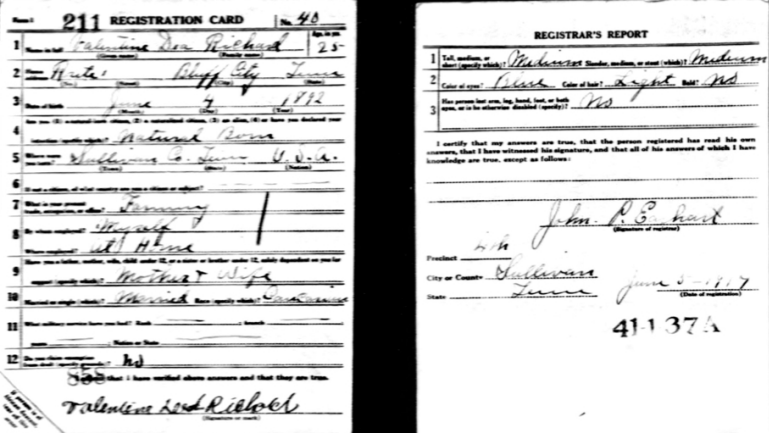 Form 1 211 REGISTRATION CARD No. 40
1 Name in full Valentine Dea Richard Age, in yrs. 25
(Given name) (Family name)
2 Home Rute 1 Bluff City Tenn
(No.) (Street) (City) (State)
3 Date of birth June 4 1892
(Month) (Day) (Year)
4 Are you (1) a natural-born citizen, (2) a naturalized citizen, (3) an alien, (4) or have you declared your
intention (specify which)? Natural Born
5 Where were you born? Sullivan Co. Tenn U.S.A.
(Town) (State) (Nation)
6 If not a citizen, of what country are you a citizen or subject?
7 What is your present trade, occupation, or office? Farming
8 By whom employed? Myself
Where employed? At Home
9 Have you a father, mother, wife, child under 12, or a sister or brother under 12, solely dependent on you for
support (specify which)? Mother & Wife
10 Married or single (which)? Married Race (specify which)? Caucasian
11 What military service have you had? Rank ; branch
years ; Nation or State
12 Do you claim exemption from draft (specify grounds)? No
that I have verified above answers and that they are true.
Valentine Richard
(Signature or mark)
REGISTRAR'S REPORT
1 Tall, medium, or short (specify which)? Medium Slender, medium, or stout (which)? Medium
2 Color of eyes? Blue Color of hair? Light Bald? No
3 Has person lost arm, leg, hand, foot, or both eyes, or is he otherwise disabled (specify)? No
I certify that my answers are true, that the person registered has read his own
answers, that I have witnessed his signature, and that all of his answers of which I have
knowledge are true, except as follows:
John P. Earhart
(Signature of registrar)
Precinct 4th
City or County Sullivan
State Tenn June 5-1917
(Date of registration)
41-1-37 A